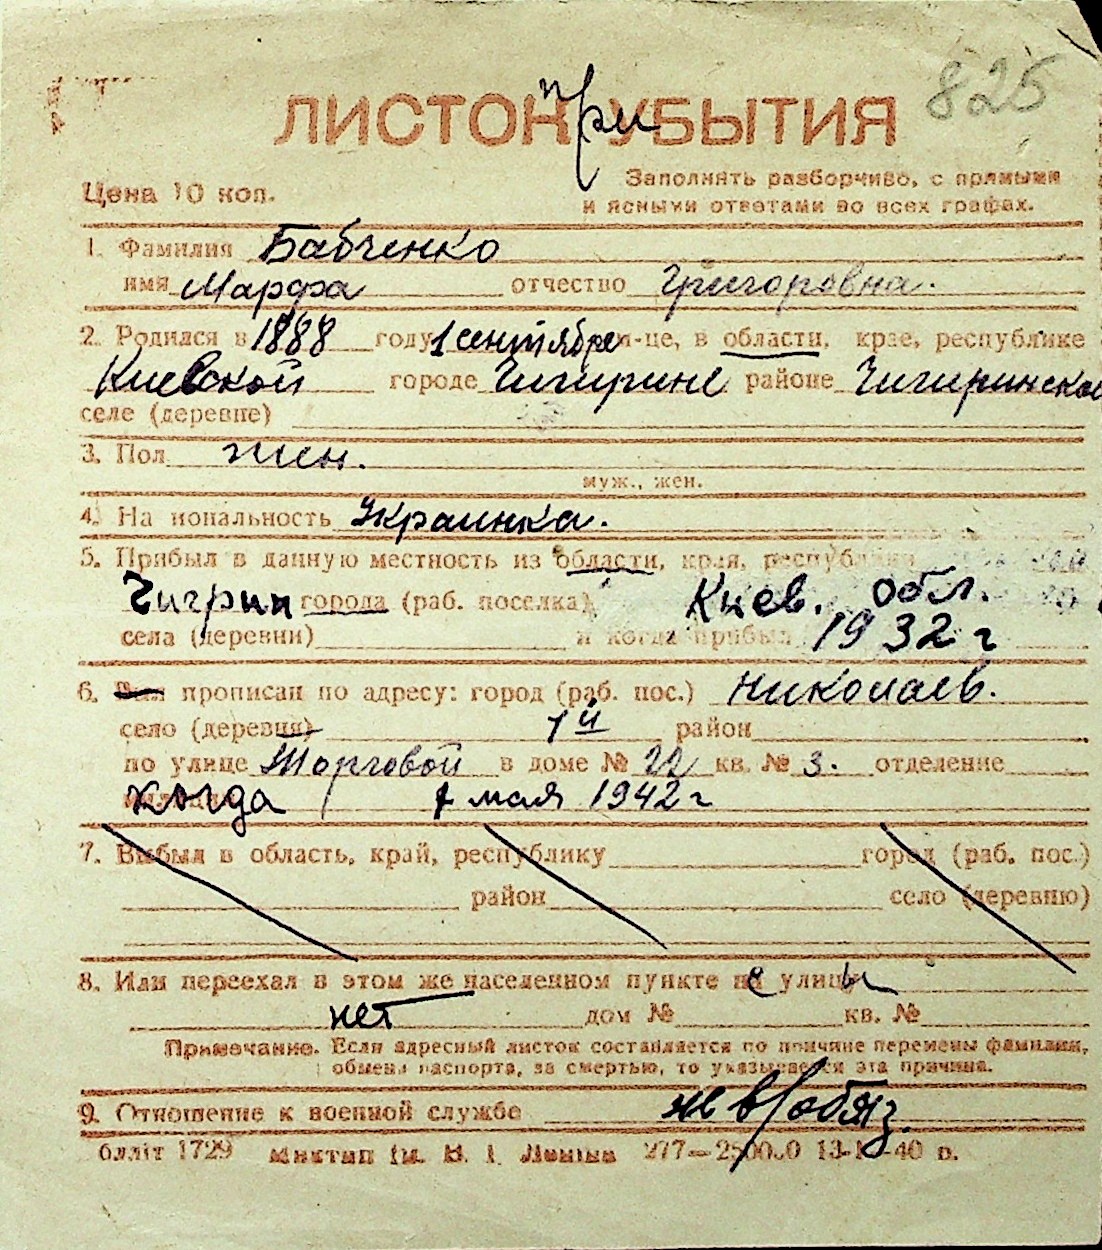 825
ЛИСТОК при УБЫТИЯ
Цена 10 коп.
Заполнять разборчиво, с прямыми
и ясными ответами во всех графах.
1. Фамилия Бабченко
имя Марфа отчество Григоровна.
2. Родился в 1888 году 1 сентября м-це, в области, крае, республике
Киевской городе Чигирине районе Чигиринском
селе (деревне)
3. Пол жин.
муж., жен.
4. На иональность Украинка.
5. Прибыл в данную местность из области, края, республики
Чигрин города (раб. поселка) Киев. обл.
села (деревни) и когда прибыл 1932 г
6. прописан по адресу: город (раб. пос.) Николаев.
село (деревня) 1й район
по улице Торговой в доме № 22 кв. № 3. отделение
когда 1 мая 1942 г
7. Выбыл в область, край, республику город (раб. пос.)
район село (деревню)
8. Или переехал в этом же населенном пункте с улицы
нет дом № кв. №
Примечание. Если адресный листок составляется по причине перемены фамилии,
обмена паспорта, за смертью, то указывается эта причина.
9. Отношение к военной службе не в/обяз.
бліт 1729 ім. В. І. Леніна 277—